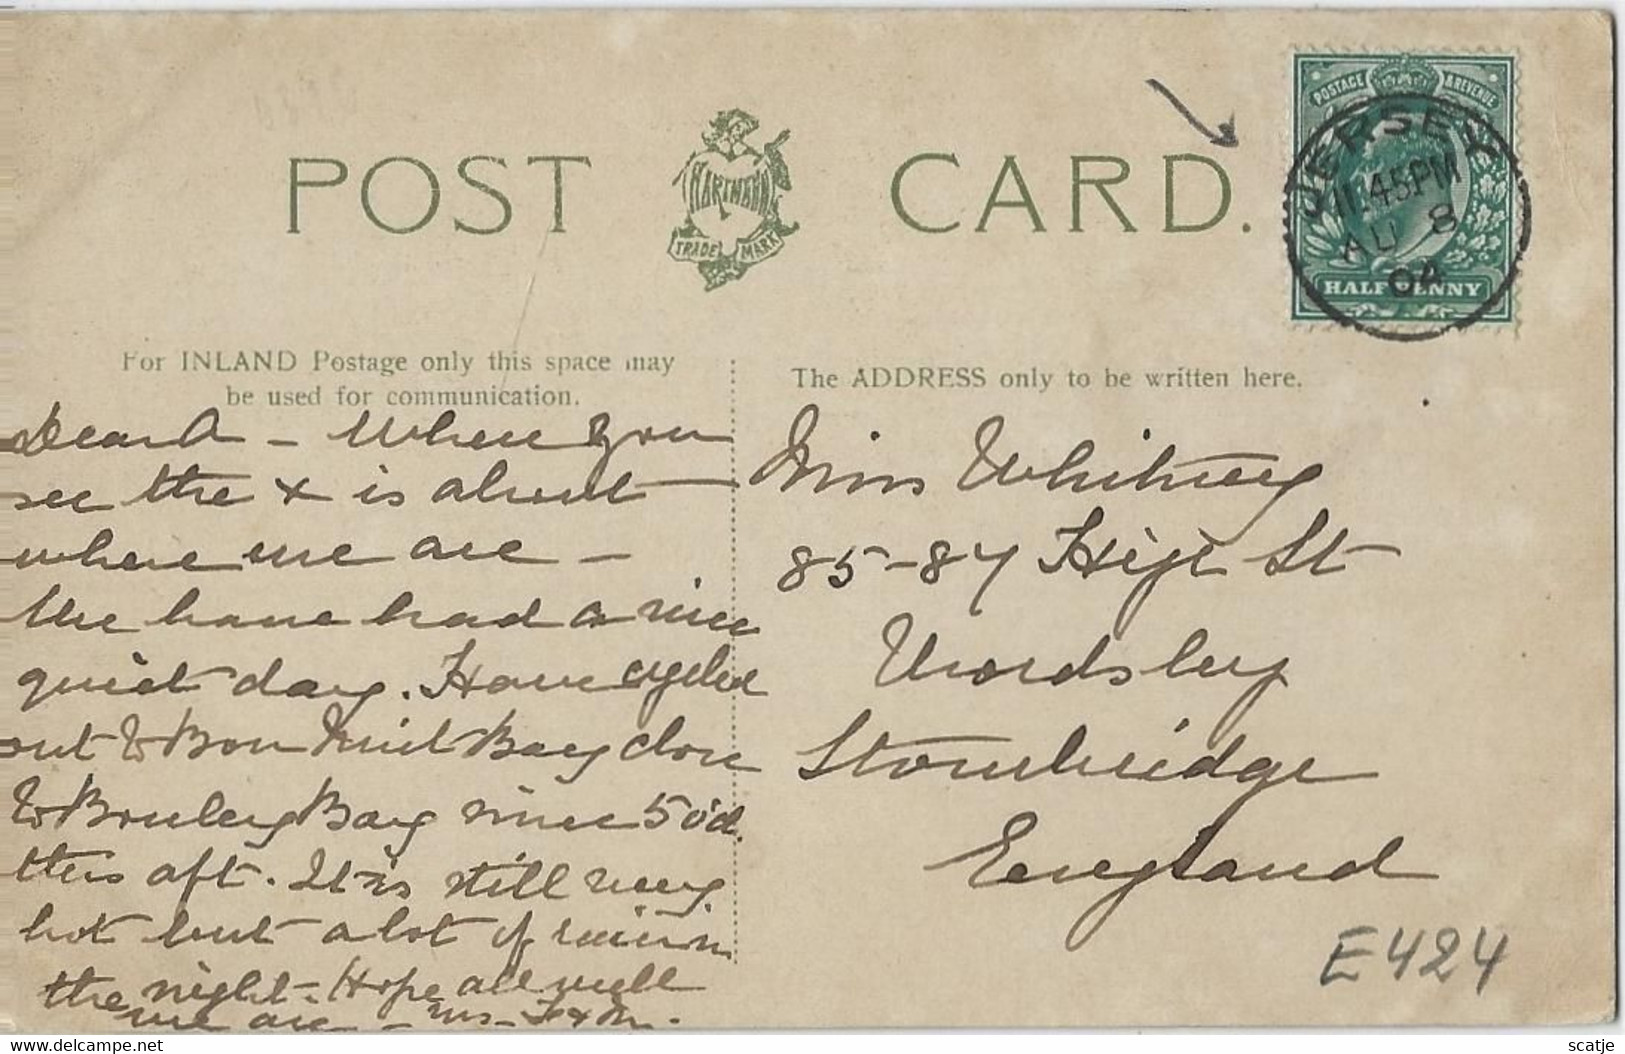 POST CARD.
HARTMANN
TRADE MARK
POSTAGE & REVENUE
JERSEY
11.45PM
AU 8
04
HALFPENNY
For INLAND Postage only this space may
be used for communication.
The ADDRESS only to be written here.
Dear A - Where you
see the x is about
where we are -
We have had a nice
quiet day. Have cycled
out to Bon Nuit Bay close
to Bouley Bay since 5 o'cl.
this aft. It is still very
hot but a lot of rain in
the night - Hope all well
we are -
Miss Whitney
85-87 High St
Wordsley
Stourbridge
England
E424
www.delcampe.net
scatje